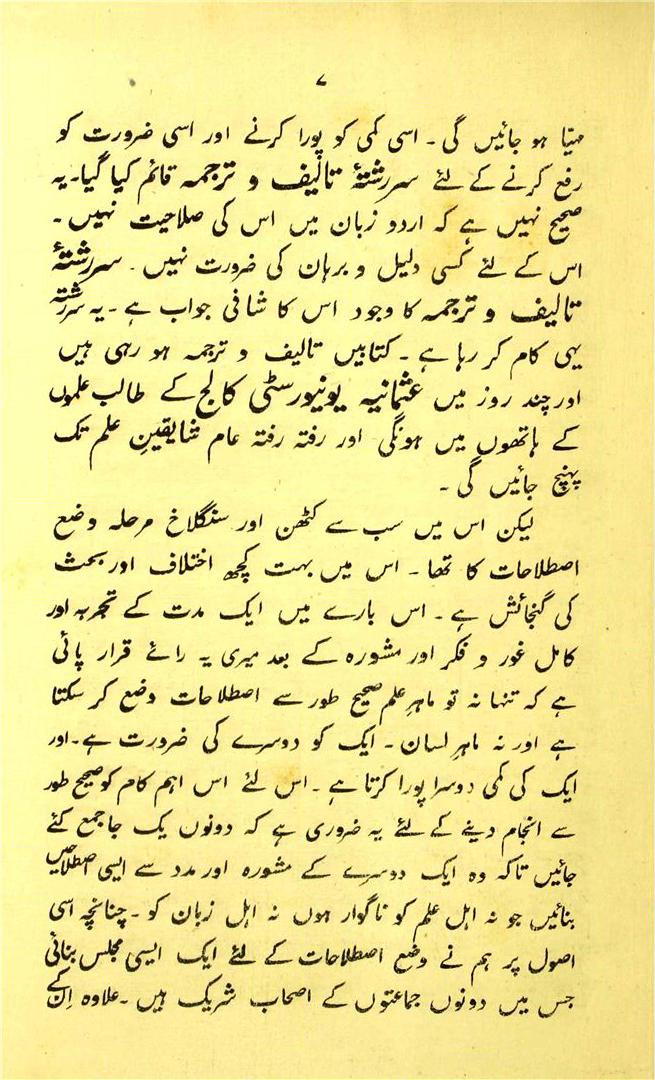 ۷
مہیّا ہو جائیں گی ۔ اسی کمی کو پورا کرنے اور اسی ضرورت کو
رفع کرنے کے لئے سررشتۂ تالیف و ترجمہ قائم کیا گیا۔ یہ
صحیح نہیں ہے کہ اردو زبان میں اس کی صلاحیت نہیں ۔
اس کے لئے کسی دلیل و برہان کی ضرورت نہیں ۔ سررشتۂ
تالیف و ترجمہ کا وجود اس کا شافی جواب ہے ۔ یہ سررشتہ
یہی کام کر رہا ہے ۔ کتابیں تالیف و ترجمہ ہو رہی ہیں
اور چند روز میں عثمانیہ یونیورسٹی کالج کے طالب علموں
کے ہاتھوں میں ہونگی اور رفتہ رفتہ عام شایقینِ علم تک
پہنچ جائیں گی ۔
لیکن اس میں سب سے کٹھن اور سنگلاخ مرحلہ وضع
اصطلاحات کا تھا ۔ اس میں بہت کچھ اختلاف اور بحث
کی گنجائش ہے ۔ اس بارے میں ایک مدت کے تجربہ اور
کامل غور و فکر اور مشورہ کے بعد میری یہ رائے قرار پائی
ہے کہ تنہا نہ تو ماہرِ علم صحیح طور سے اصطلاحات وضع کر سکتا
ہے اور نہ ماہرِ لسان ۔ ایک کو دوسرے کی ضرورت ہے ۔ اور
ایک کی کمی دوسرا پورا کرتا ہے ۔ اس لئے اس اہم کام کو صحیح طور
سے انجام دینے کے لئے یہ ضروری ہے کہ دونوں یک جا جمع کئے
جائیں تاکہ وہ ایک دوسرے کے مشورہ اور مدد سے ایسی اصطلاحیں
بنائیں جو نہ اہل علم کو ناگوار ہوں نہ اہل زبان کو ۔ چنانچہ اسی
اصول پر ہم نے وضع اصطلاحات کے لئے ایک ایسی مجلس بنائی
جس میں دونوں جماعتوں کے اصحاب شریک ہیں ۔ علاوہ اِن کے